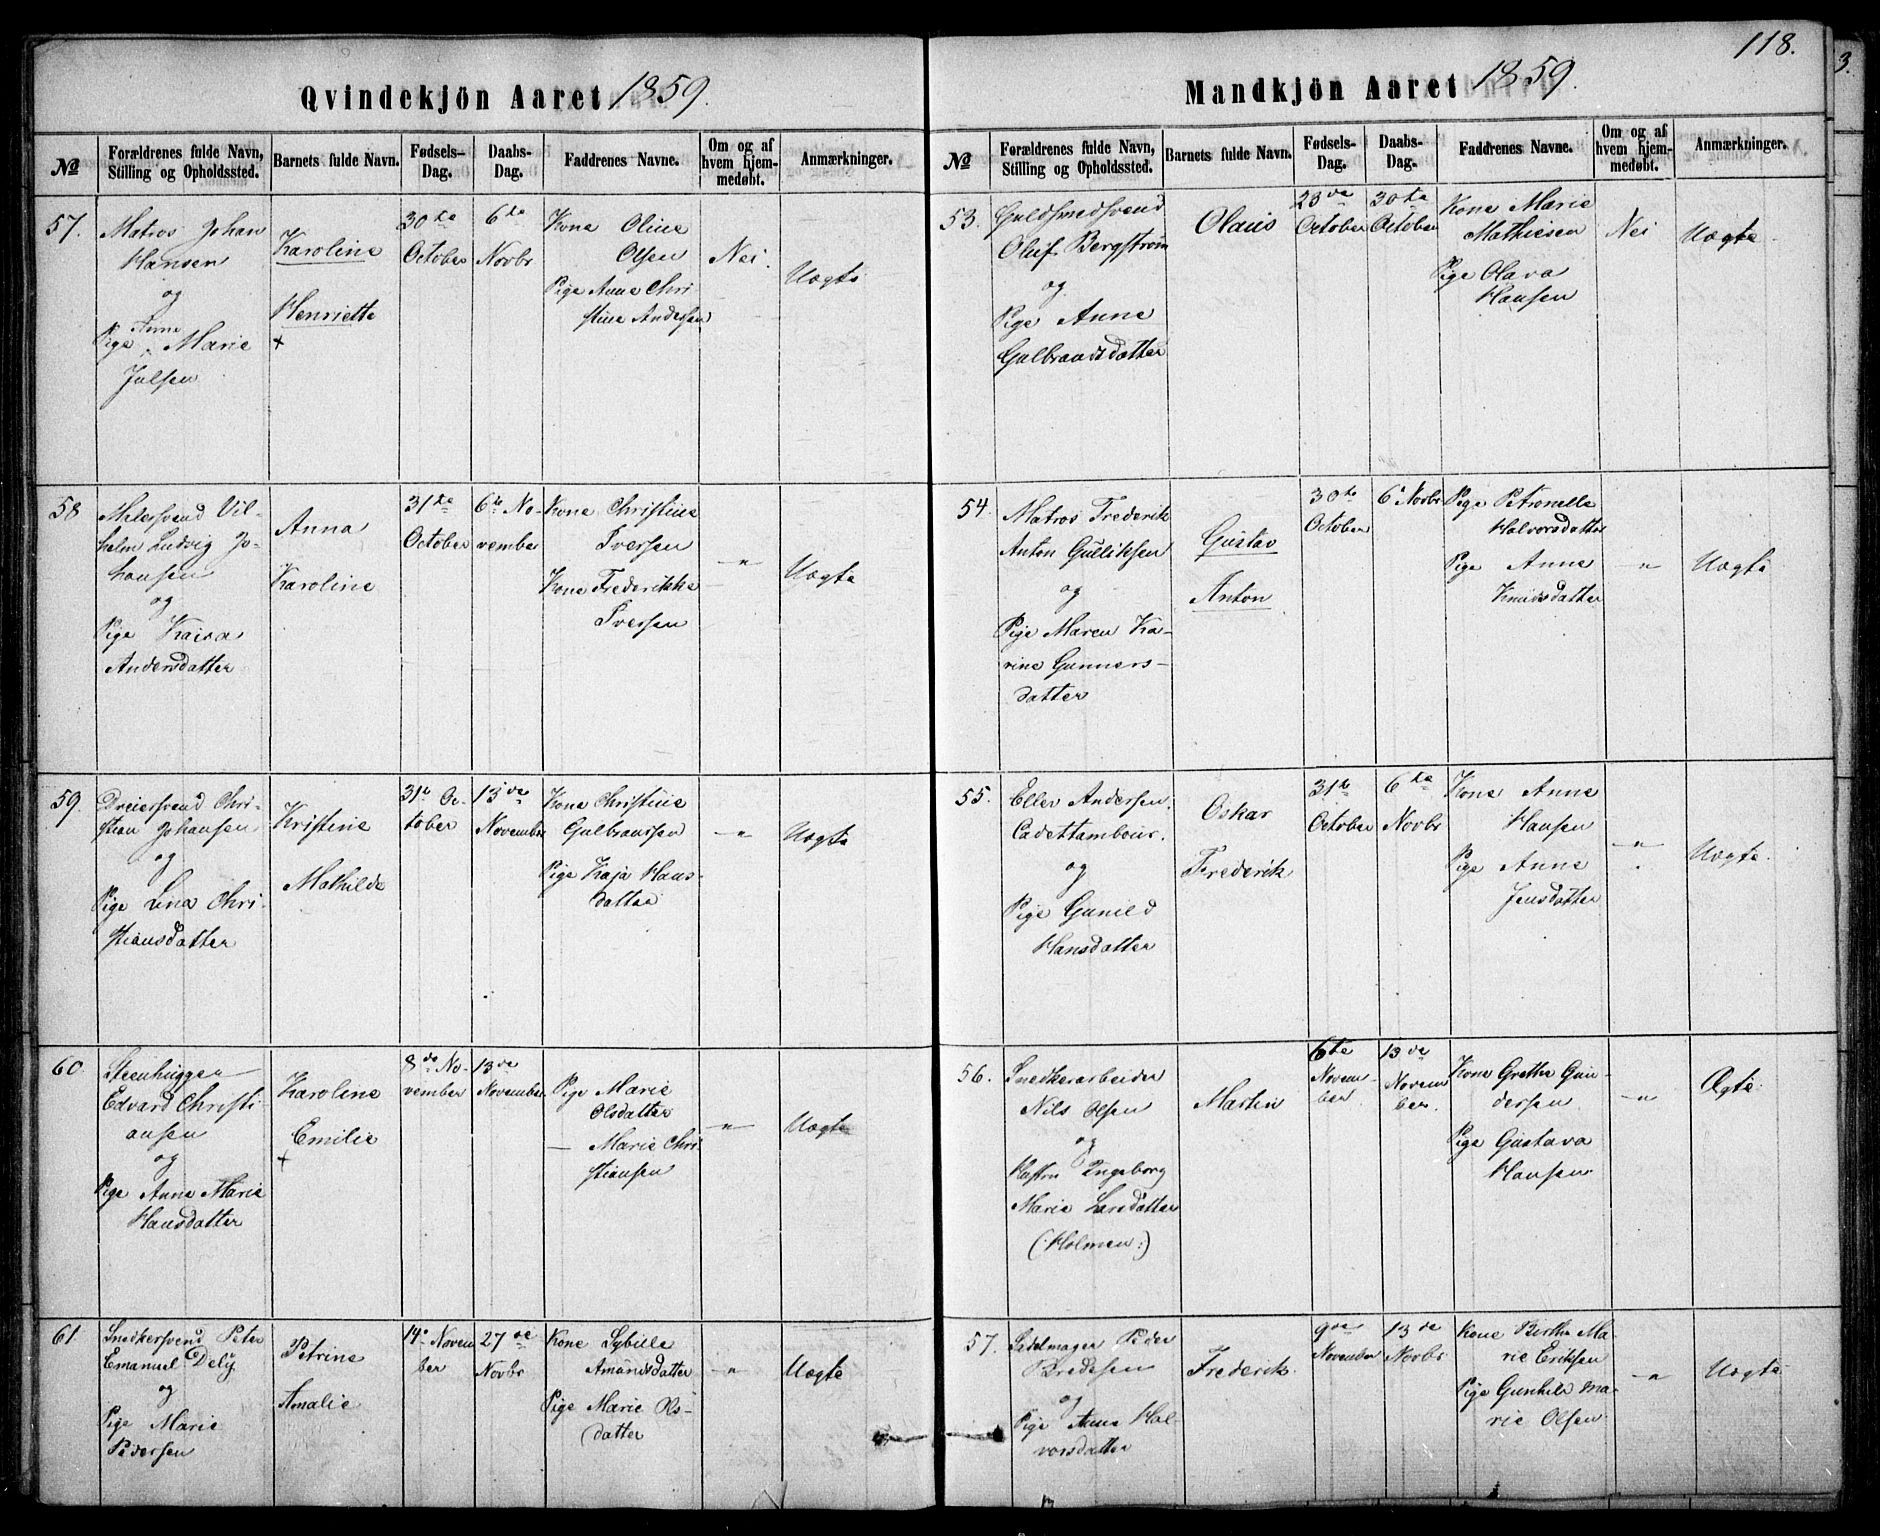 118.
3.
Qvindekjön Aaret 1859.
No
Forældrenes fulde Navn, Stilling og Opholdssted.
Barnets fulde Navn.
Fødsels-Dag.
Daabs-Dag.
Faddrenes Navne.
Om og af hvem hjemmedøbt.
Anmærkninger.
57.
Matros Johan
Hansen
og
Anne
Pige „ Marie
Julsen
Karoline
Henriette
+
30te
October
6te
Novbr
Kone Oline
Olsen
Pige Anne Chri
stine Andersen
Nei.
Uægte
58
Malersvend Vil-
helm Ludvig Jo-
hansen
og
Pige Kaisa
Andersdatter
Anna
Karoline
31te
October
6te No-
vember
Kone Christine
Iversen
Kone Frederikke
Iversen
"
Uægte
59.
Dreiersvend Chri-
stian Johansen
og
Pige Lina Chri-
stiansdatter
Kristine
Mathilde
31te Oc-
tober
13de
November
Kone Christine
Gulbranssen
Pige Kaja Hans-
datter
"
Uægte
60
Steenhugger
Edvard Christi
ansen
og
Pige Anne Marie
Hansdatter
Karoline
Emilie
+
8de No-
vember
13de
November
Pige Marie
Olsdatter
— Marie Chri
stiansen
"
Uægte
61
Snedkersvend Peter
Emanuel Dely
og
Pige Marie
Pedersen
Petrine
Amalie
14de Novem
ber
27de
Novbr
Kone Sybille
Amundsdatter
Pige Marie Ols-
datter
"
Uægte
Mandkjön Aaret 1859.
No
Forældrenes fulde Navn, Stilling og Opholdssted.
Barnets fulde Navn.
Fødsels-Dag.
Daabs-Dag.
Faddrenes Navne.
Om og af hvem hjemmedøbt.
Anmærkninger.
53.
Guldsmedsvend
Oluf Bergstrøm
og
Pige Anne
Gulbrandsdatter
Olaus
23de
October
30te
October
Kone Marie
Mathiesen
Pige Olava
Hansen
Nei
Uægte
54.
Matros Frederik
Anton Gulliksen
og
Pige Maren Ka-
rine Gunners-
datter
Gustav
Anton
30te
October
6te Novbr
Pige Petronelle
Halvorsdatter
Pige Anne
Knudsdatter
"
Uægte
55.
Eller Andersen
Cadettambour.
og
Pige Gunild
Hansdatter
Oskar
Frederik
31te
October
6te
Novbr
Kone Anne
Hansen
Pige Anne
Jensdatter
"
Uægte.
56.
Snedkerarbeider
Nils Olsen
og
Hustru Ingeborg
Marie Larsdatter
(:Holmen:)
Martin
6te
Novem-
ber
13de
Novem
ber.
Kone Grethe Gun-
dersen
Pige Gustava
Hansen
"
Ægte
57.
Sedelmager Peder
Bredesen
og
Pige Anne Hal-
vorsdatter
Frederik
9de
November
13de
Novbr
Kone Berthe Ma-
rie Eriksen
Pige Gunhild Ma-
rie Olsen
"
Uægte